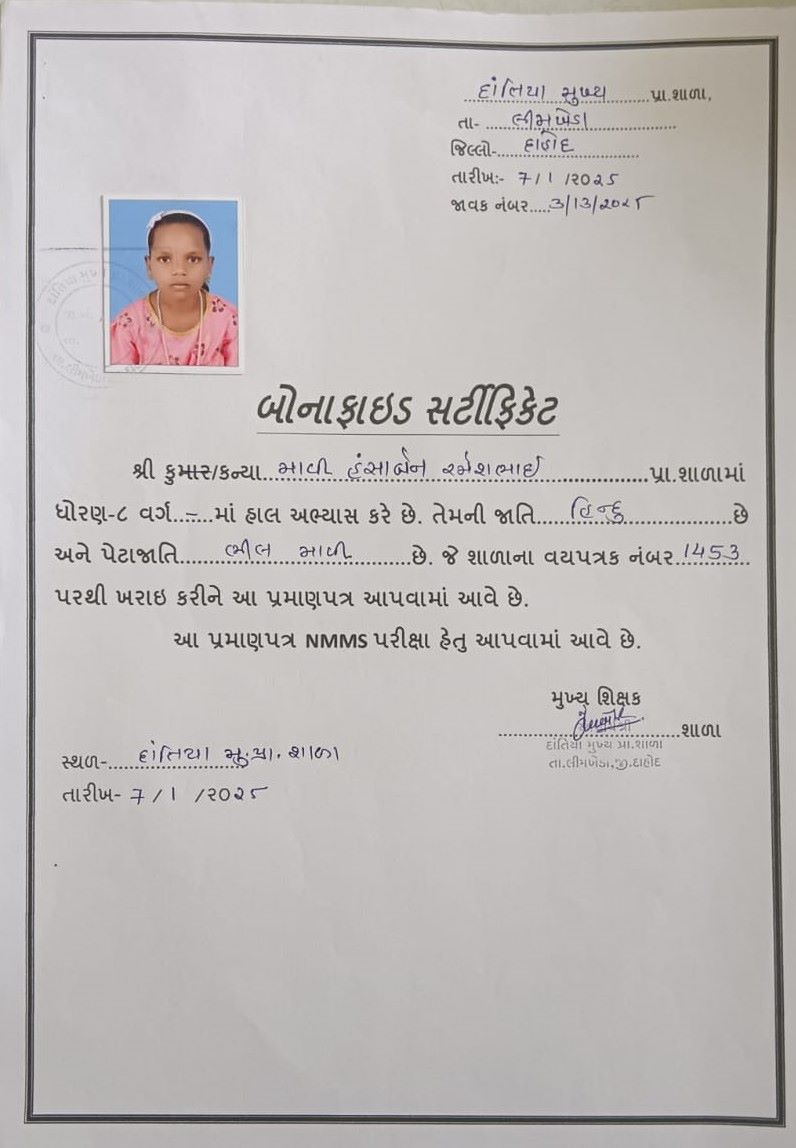 દાંતિયા મુખ્ય ........ પ્રા.શાળા,
તા- ... લીમખેડા ............
જિલ્લો-.... દાહોદ ............
તારીખ:- 7/1/૨૦૨૫
જાવક નંબર..... 3/13/૨૦૨૫
બોનાફાઇડ સર્ટીફિકેટ
શ્રી કુમાર/કન્યા.. માવી હંસાબેન રમેશભાઈ ................ પ્રા.શાળામાં
ધોરણ-૮ વર્ગ..-...માં હાલ અભ્યાસ કરે છે. તેમની જાતિ..... હિન્દુ ...............છે
અને પેટાજાતિ....... ભીલ માવી .........છે. જે શાળાના વયપત્રક નંબર 1453
પરથી ખરાઇ કરીને આ પ્રમાણપત્ર આપવામાં આવે છે.
આ પ્રમાણપત્ર NMMS પરીક્ષા હેતુ આપવામાં આવે છે.
મુખ્ય શિક્ષક
............................શાળા
દાંતિયા મુખ્ય પ્રા.શાળા
તા.લીમખેડા,જી.દાહોદ
સ્થળ-..... દાંતિયા મુ.પ્રા. શાળા
તારીખ- 7/1/૨૦૨૫